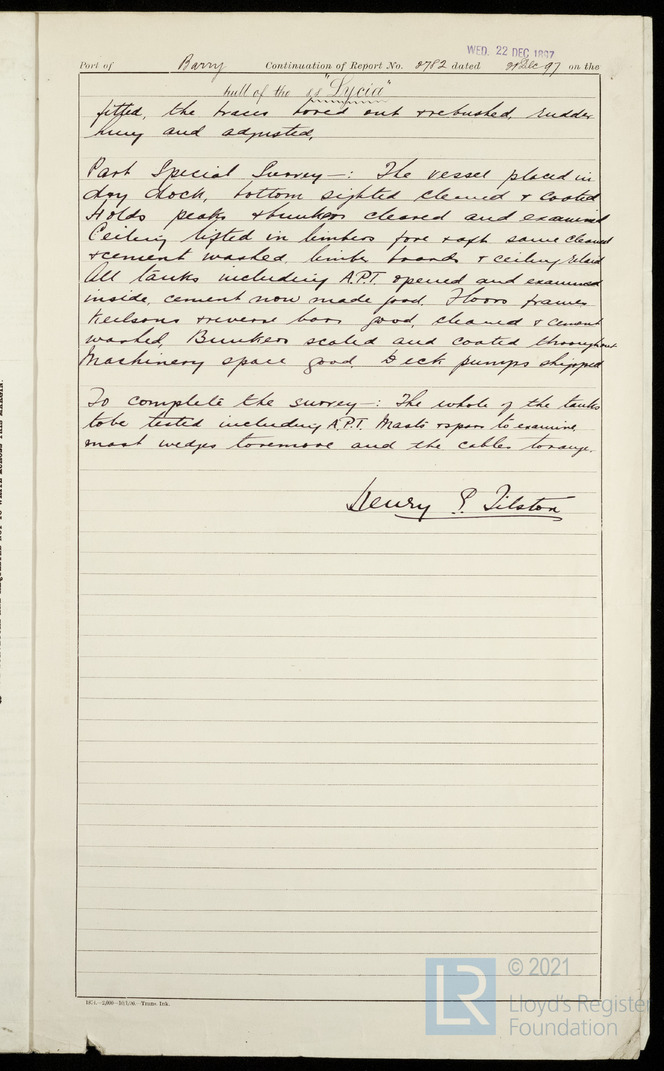 WED. 22 DEC 1897
Port of Barry Continuation of Report No. 8782 dated 21 Dec 97 on the
hull of the ss "Lycia"
fitted, the braces bored out & rebushed, rudder
hung and adjusted.
Part Special Survey—: The vessel placed in
dry dock, bottom sighted cleaned & coated
Holds peaks & bunkers cleared and examined
Ceiling lifted in limbers fore & aft same cleaned
& cement washed, limber boards & ceiling relaid
All tanks including A.P.T. opened and examined
inside, cement now made good. Floors frames
keelsons & reverse bars good, cleaned & cement
washed, Bunkers scaled and coated throughout
Machinery space good. Deck pumps shipped
To complete the survey—: The whole of the tanks
to be tested including A.P.T. Masts & spars to examine
mast wedges to remove and the cables to range.
Henry P. Tilston
© 2021
Lloyd's Register
Foundation
LR